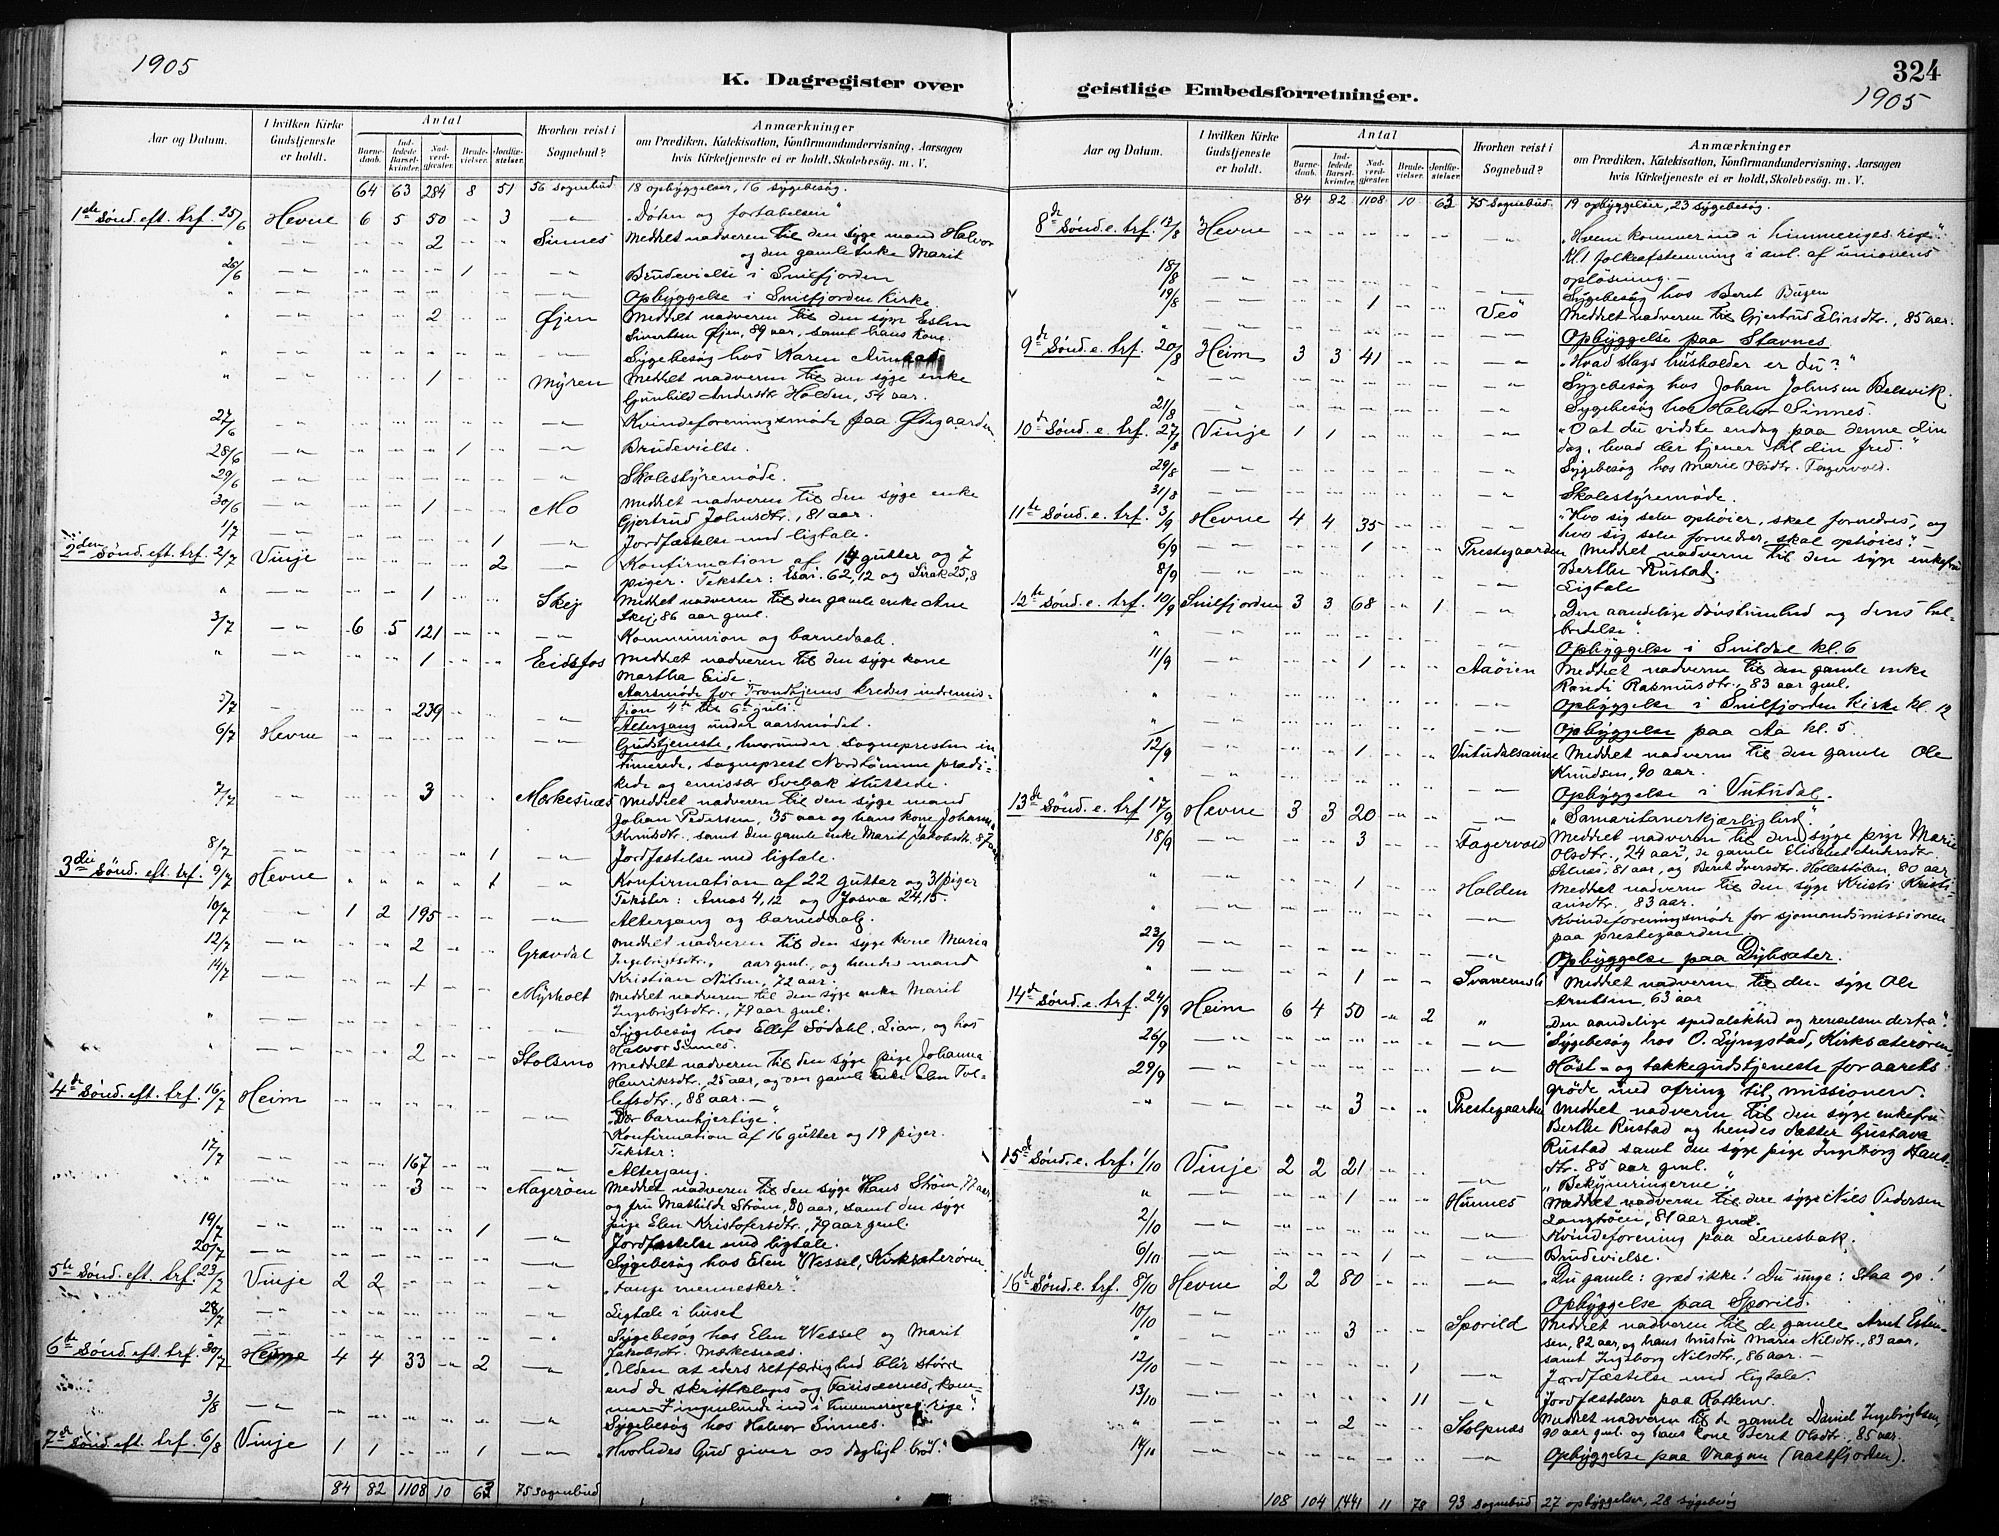 1905
K. Dagregister over
Aar og Datum.
I hvilken Kirke Gudstjeneste er holdt.
Antal
Barnedaab.
Indledede Barselkvinder.
Nadverdgjæster.
Brudevielser.
Jordfæstelser.
Hvorhen reist i Sognebud?
Anmærkninger
om Prædiken, Katekisation, Konfirmandundervisning, Aarsagen
hvis Kirketjeneste ei er holdt, Skolebesøg. m. V.
64 63 284 8 51 56 sognebud 18 opbyggelser, 16 sygebesøg.
1ste Sønd. eft. trf. 25/6 Hevne 6 5 50 3 "Døden og fortabelsen"
2 Sinnes Meddelt nadveren til den syge mand Halvor
og den gamle enke Marit
26/6 1 Brudevielse i Snilfjorden
Opbyggelse i Snilfjorden kirke.
2 Øjen Meddelt nadveren til den syge Esten
Sivertsen Øjen, 89 aar, samt hans kone.
Sygebesøg hos Karen
1 Myren Meddelt nadveren til den syge enke
Gunhild Andersdtr. Holden, 54 aar.
27/6 Kvindeforeningsmøde paa Ødegaarden
28/6 1 Brudevielse.
29/6 Skolestyremøde.
30/6 1 Mo Meddelt nadveren til den syge enke
Gjertrud Johnsdtr., 81 aar.
1/7 1 Jordfæstelse med ligtale.
2den Sønd. eft. trf. 2/7 Vinje 2 Konfirmation af 14 gutter og 7
piger. Tekster: Esai. 62,12 og Sirak 25,8
1 Skej Meddelt nadveren til den gamle enke Ane
Skej, 86 aar gml.
3/7 6 5 121 Kommunion og barnedaab.
1 Eidsfos Meddelt nadveren til den syge kone
Martha Eide.
Aarsmøde for Trondhjems kredses indremis-
5/7 239 sion 4de til 6te juli.
Altergang under aarsmødet.
6/7 Hevne Gudstjeneste, hvorunder sognepresten in-
timerede, sogneprest Nordtømme prædi-
kede og emissær Svebak sluttede.
7/7 3 Mærkesnæs Meddelt nadveren til den syge mand
Johan Pedersen, 35 aar og hans kone Johanna
Knutsdtr., samt den gamle enke Marit Jakobsdt. 87 aar
8/7 1 Jordfæstelse med ligtale.
3die Sønd. eft. trf. 9/7 Hevne 1 Konfirmation af 22 gutter og 31 piger
Tekster: Amos 4,12 og Josva 24,15.
10/7 1 2 195 Altergang og barnedaab.
12/7 2 Gravdal Meddelt nadveren til den syge kone Maria
Ingebrigtsdtr., aar gml., og hendes mand
14/7 Kristian Nilsen, 72 aar.
1 Myrholt Meddelt nadveren til den syge enke Marit
Ingebrigtsdtr., 79 aar gml.
Sygebesøg hos Ellef Sødahl, Lian, og hos
Halvor Sinnes.
2 Stolsmo Meddelt nadveren til den syge pige Johanna
Henriksdtr., 25 aar, og den gamle Enke Elen Tol-
lefsdtr., 88 aar. —
4de Sønd. eft. trf. 16/7 Heim "Vær barmhjertige".
Konfirmation af 16 gutter og 19 piger.
Tekster:
17/7 167 Altergang.
3 Magerøen Meddelt nadveren til den syge Hans Strøm, 77 aar,
og fru Mathilde Strøm, 80 aar, samt den syge
pige Elen Kristofersdtr., 79 aar gml.
19/7 1 Jordfæstelse med ligtale.
20/7 Sygebesøg hos Elen Wessel, Kirksæterøren.
5te Sønd. eft. trf. 23/7 Vinje 2 2 "Fange mennesker".
28/7 Ligtale i huset
Sygebesøg hos Elen Wessel og Marit
Jakobsdtr. Mærkesnæs.
6te Sønd. eft. trf. 30/7 Hevne 4 4 33 2 "Uden at eders retfærdighed blir større
end de skriftkloges og Farisæernes, kom-
mer I ingenlunde ind i himmeriges rige".
3/8 Sygebesøg hos Halvor Sinnes.
7de Sønd. eft. trf. 6/8 Vinje 1 1 1 "Hvorledes Gud giver os dagligt brød."
84 82 1108 10 63 75 sognebud
324
1905
geistlige Embedsforretninger.
Aar og Datum.
I hvilken Kirke Gudstjeneste er holdt.
Antal
Barnedaab.
Indledede Barselkvinder.
Nadverdgjæster.
Brudevielser.
Jordfæstelser.
Hvorhen reist i Sognebud?
Anmærkninger
om Prædiken, Katekisation, Konfirmandundervisning, Aarsagen
hvis Kirketjeneste ei er holdt, Skolebesøg. m. V.
84 82 1108 10 63 75 Sognebud. 19 opbyggelser, 23 sygebesøg.
8de Sønd. e. trf. 13/8 Hevne "Hvem kommer ind i himmeriges rige".
Kl. 1 folkeafstemning i anl. af unionens
opløsning. —
18/8 Sygebesøg hos Beret Bugen
19/8 1 Veø Meddelt nadveren til Gjertrud Elinsdtr., 85 aar.
Opbyggelse paa Stavnes.
9de Sønd. e. trf. 20/8 Heim 3 3 41 "Hvad slags husholder er du?"
Sygebesøg hos Johan Johnsen Belsvik.
21/8 Sygebesøg hos Halvor Sinnes.
10de Sønd. e. trf. 27/8 Vinje 1 1 "O at du vidste endog paa denne din
dag, hvad der tjener til din fred."
29/8 Sygebesøg hos Marie Olsdtr. Fagervold.
31/8 Skolestyremøde.
11te Sønd. e. trf. 3/9 Hevne 4 4 35 "Hvo sig selv ophøier, skal fornedres, og
hvo sig selv fornedrer, skal ophøies".
6/9 1 Prestegaarden Meddelt nadveren til den syge enkefru
Berthe Rustad.
8/9 Ligtale
12te Sønd. e. trf. 10/9 Snilfjorden 3 3 68 1 "Den aandelige døvstumhed og dens hel-
bredelse".
Opbyggelse i Snildal kl. 6
11/9 1 Aaøien Meddelt nadveren til den gamle enke
Randi Rasmusdtr., 83 aar gml.
Opbyggelse i Snilfjorden Kirke kl. 12
Opbyggelse paa Aa kl. 5.
12/9 1 Meddelt nadveren til den gamle Ole
Knudsen, 90 aar.
Opbyggelse i
13de Sønd. e. trf. 17/9 Hevne 3 3 20 "Samaritanerkjærlighed".
18/9 3 Fagervold Meddelt nadveren til den syge pige Marie
Olsdtr., 24 aar, de gamle Elisabet Andersdtr.
Selnes, 81 aar, og Berit Iversdtr. Hollestølan, 80 aar
1 Holden Meddelt nadveren til den syge Kristi Kristi-
ansdtr. 83 aar.
Kvindeforeningsmøde for sjømandsmissionen
paa prestegaarden.
23/9 Opbyggelse paa Dybsæter.
1 Svanemsli Meddelt nadveren til den syge Ole
Arntsen, 63 aar
14de Sønd. e. trf. 24/9 Heim 6 4 50 2 "Den aandelige spedalskhed og renselsen derfra".
26/9 Sygebesøg hos O. Lyngstad, Kirksæterøren.
29/9 Høst- og takkegudstjeneste for aarets
grøde med ofring til missionen.
3 Prestegaarden Meddelt nadveren til den syge enkefru
Berthe Rustad og hendes datter Gustava
Rustad samt den syge pige Ingeborg Hans-
dtr. 85 aar gml.
15de Sønd. e. trf. 1/10 Vinje 2 2 21 "Bekymringerne".
1 Hunnes Meddelt nadveren til den syge Nils Pedersen
81 aar gml.
2/10 Kvindeforening paa Lenesbak.
6/10 1 Brudevielse.
16de Sønd. e. trf. 8/10 Hevne 2 2 80 "Du gamle: græd ikke! Du unge: staa op!
Opbyggelse paa Sporild.
10/10 3 Sporild Meddelt nadveren til de gamle Arnt Esten-
sen, 82 aar, og hans hustru Maris Nilsdtr., 83 aar,
samt Ingeborg Nilsdtr., 86 aar. —
12/10 1 Jordfæstelse med ligtale.
13/10 11 Jordfæstelser paa
2 Stolpnæs Meddelt nadveren til de gamle Daniel Ingebrigtsen,
90 aar gml. og hans kone Beret Olsdtr., 85 aar.
14/10 Opbyggelse paa Vaagan (Aastfjorden).
108 104 1441 11 78 93 sognebud 27 opbyggelser, 28 sygebesøg